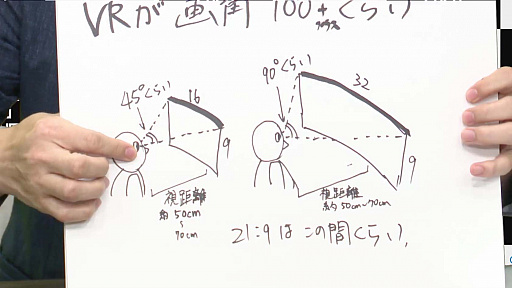 VRが画角100+くらい
プラス
45°くらい
16
9
視距離
約50cm
~
70cm
90°くらい
32
9
視距離
約50cm~70cm
21:9はこの間くらい、